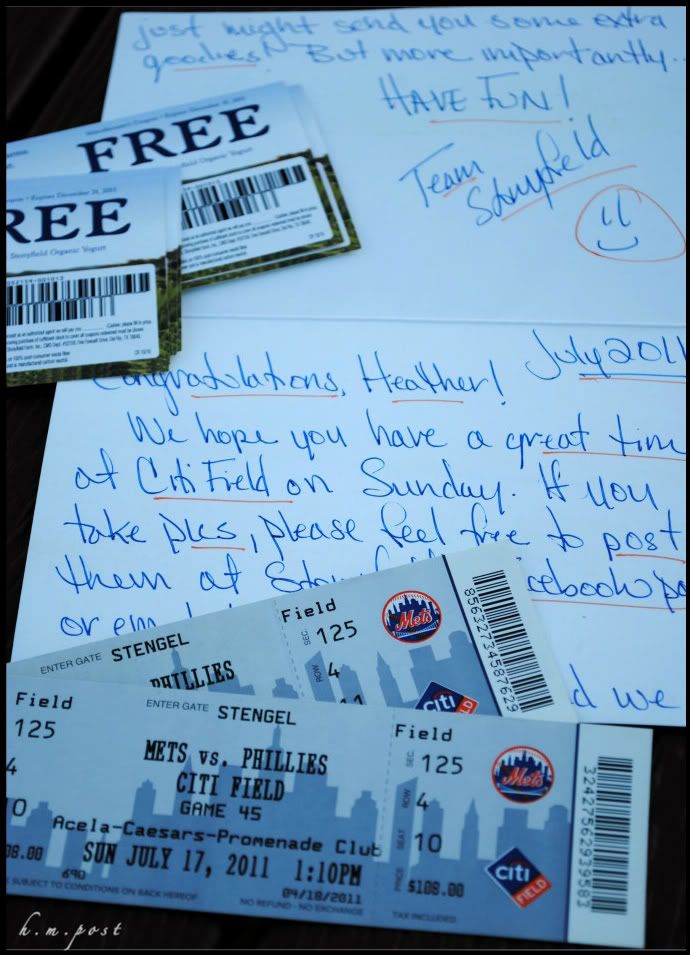 just might send you some extra
goodies! But more importantly..
HAVE FUN!
Team
Stonyfield
FREE
Stonyfield Organic Yogurt
REE
Stonyfield Organic Yogurt
July 2011
Congratulations, Heather!
We hope you have a great tim
at Citi Field on Sunday. If you
take pics, please feel free to post
them at
or em
d we
ENTER GATE STENGEL
PHILLIES
Field
SEC. 125
ROW 4
11
Mets
citi FIELD
85632734587629
Field
125
4
10
08.00
ENTER GATE STENGEL
METS vs. PHILLIES
CITI FIELD
GAME 45
Acela-Caesars-Promenade Club
SUN JULY 17, 2011 1:10PM
690 04/18/2011
SUBJECT TO CONDITIONS ON BACK HEREOF NO REFUND - NO EXCHANGE
Field
SEC. 125
ROW 4
SEAT 10
PRICE $108.00
TAX INCLUDED
Mets
citi FIELD
32427562939583
h.m.post